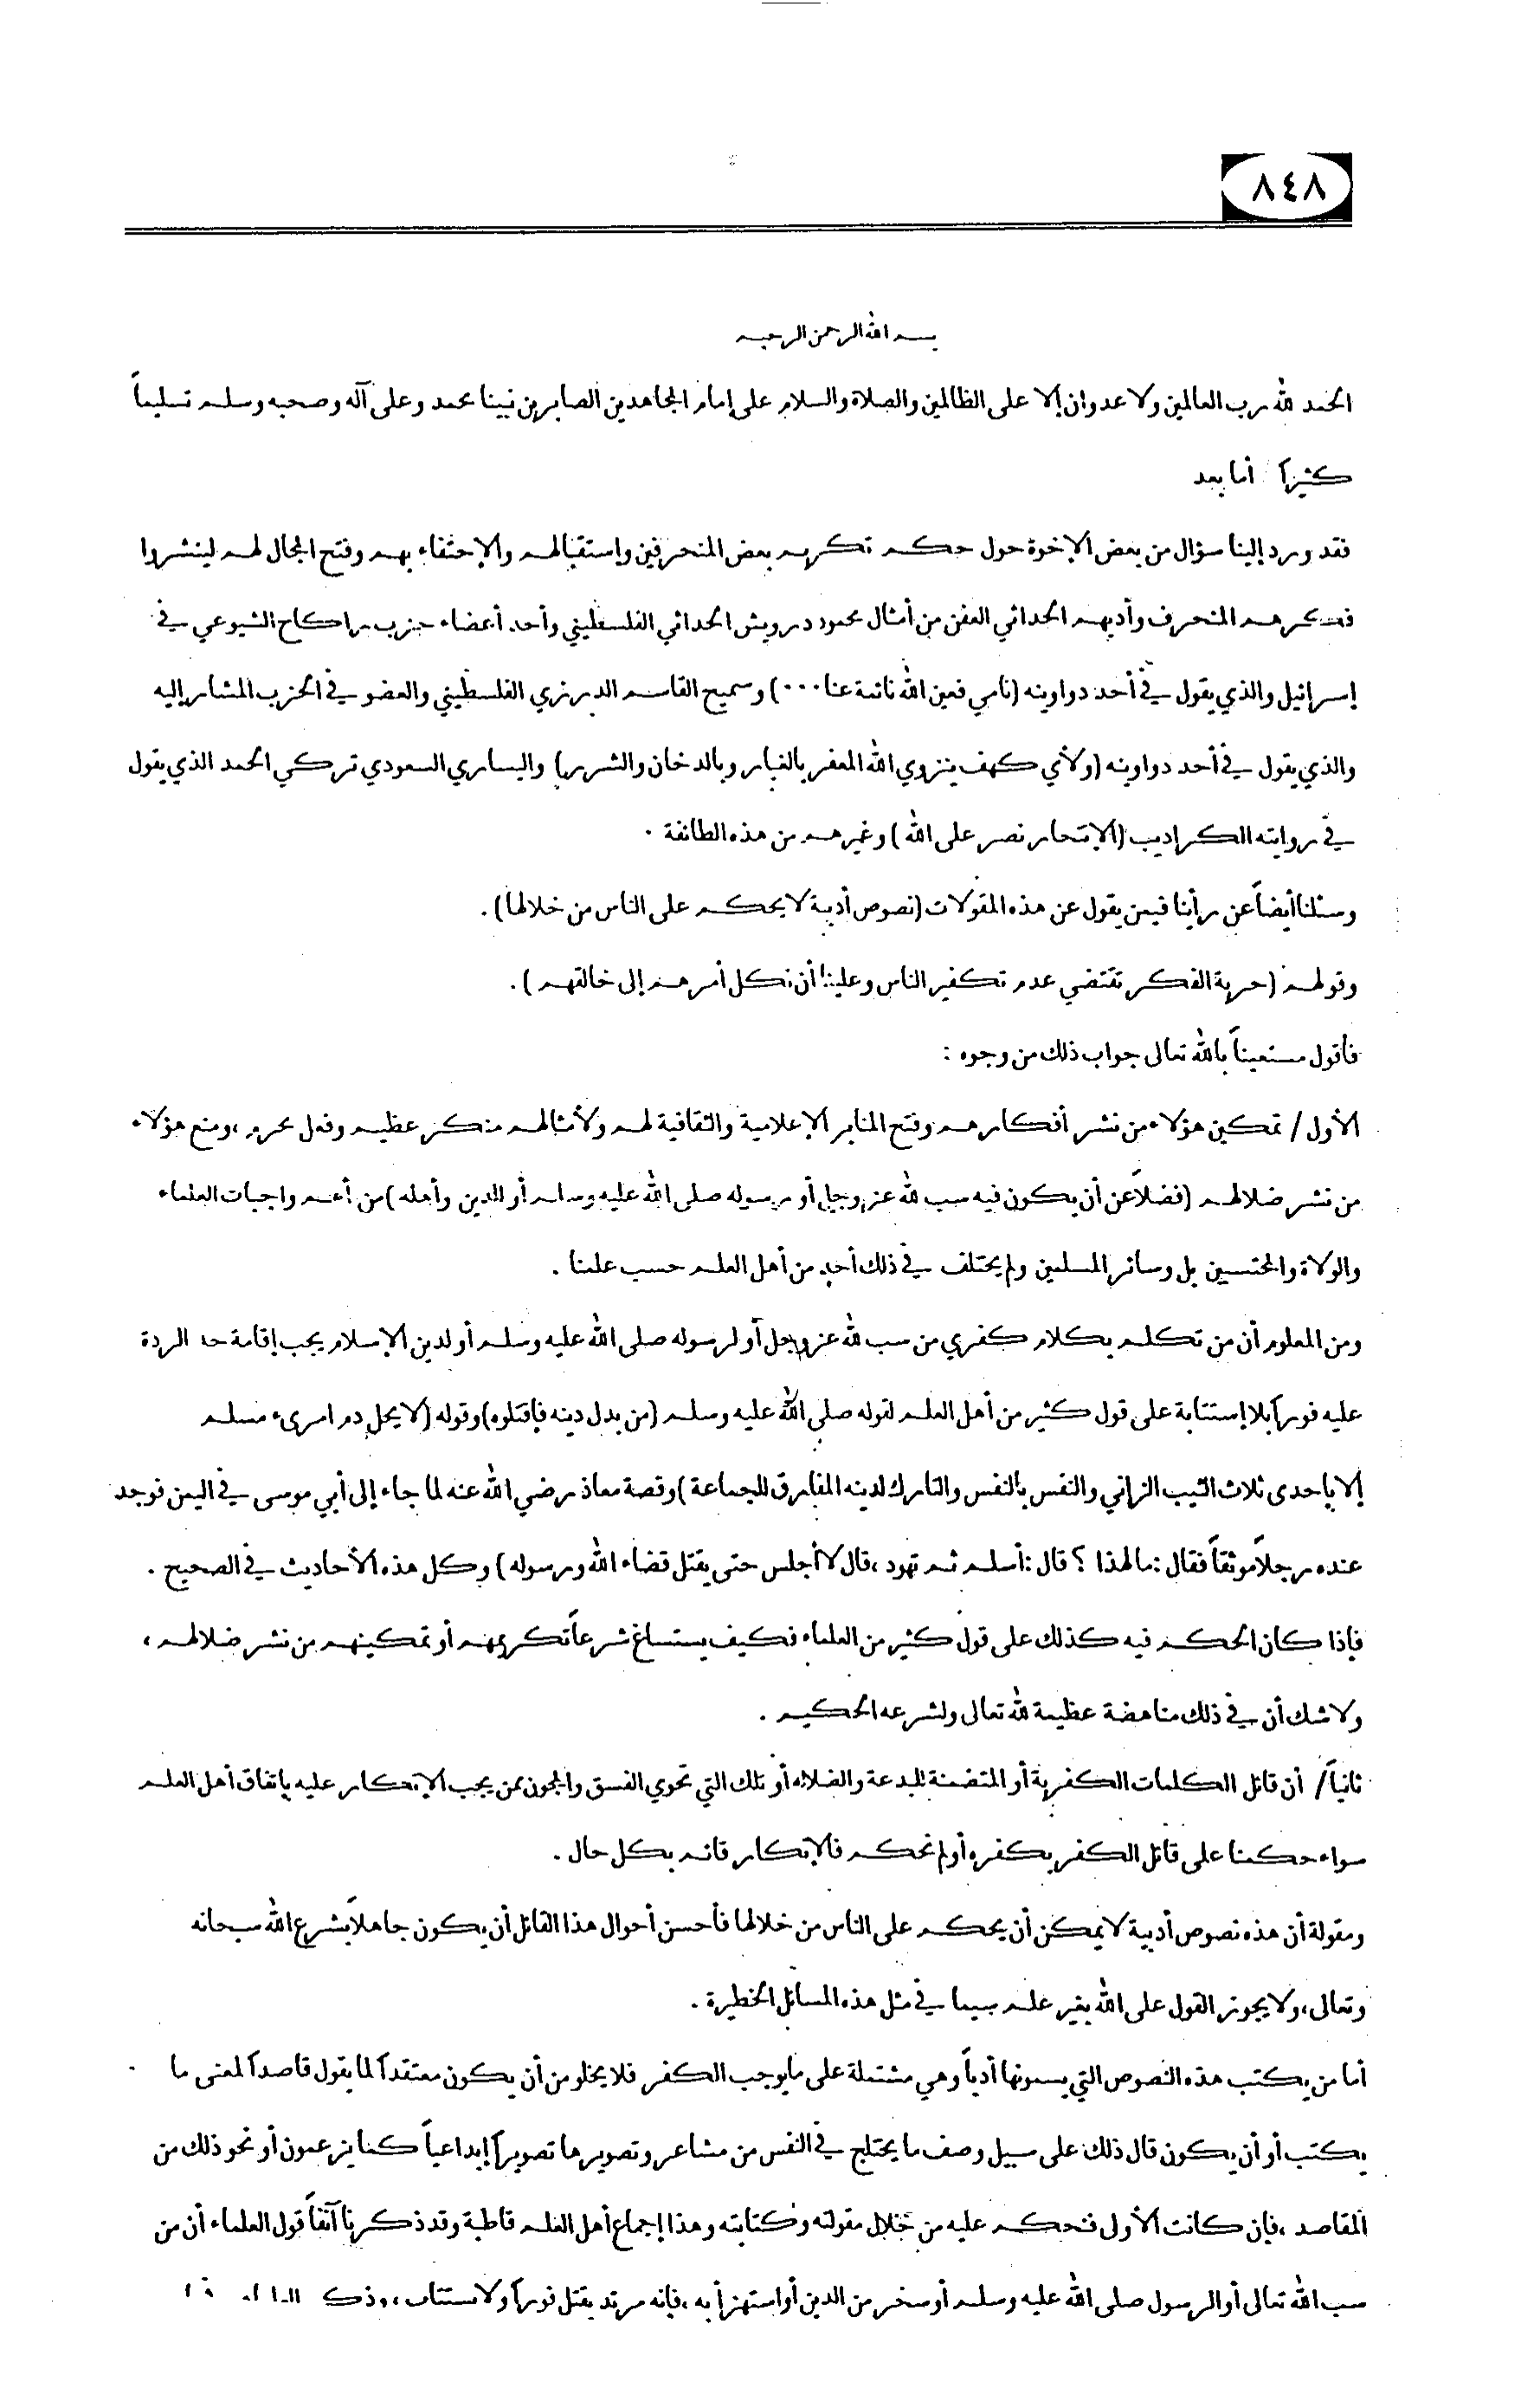 ٨٤٨
بسم الله الرحمن الرحيم
الحمد لله رب العالمين ولا عدوان إلا على الظالمين والصلاة والسلام على إمام المجاهدين الصابرين نبينا محمد وعلى آله وصحبه وسلم تسليماً
كثيراً أما بعد
فقد ورد إلينا سؤال من بعض الإخوة حول حكم تكريم بعض المنحرفين واستقبالهم والإحتفاء بهم وفتح المجال لهم لينشروا
فكرهم المنحرف وأدبهم الحداثي العفن من أمثال محمود درويش الحداثي الفلسطيني وأحد أعضاء حزب راكاح الشيوعي في
إسرائيل والذي يقول في أحد دواوينه (نامي فعين الله نائمة عنا ...) وسميح القاسم الدرزي الفلسطيني والعضو في الحزب المشار إليه
والذي يقول في أحد دواوينه (ولأي كهف ينزوي الله المعفر بالغبار وبالدخان والشرر) واليساري السعودي تركي الحمد الذي يقول
في روايته الكراديب (الإنتحار نصر على الله) وغيرهم من هذه الطائفة .
وسئلنا أيضاً عن رأينا فيمن يقول عن هذه المقولات (نصوص أدبية لا يحكم على الناس من خلالها) .
وقولهم (حرية الفكر تقتضي عدم تكفير الناس وعلينا أن نكل أمرهم إلى خالقهم) .
فأقول مستعيناً بالله تعالى جواب ذلك من وجوه :
الأول / تمكين هؤلاء من نشر أفكارهم وفتح المنابر الإعلامية والثقافية لهم ولأمثالهم منكر عظيم وفعل محرم ، ومنع هؤلاء
من نشر ضلالهم (فضلاً عن أن يكون فيه سب لله عز وجل أو رسوله صلى الله عليه وسلم أو للدين وأهله) من أهم واجبات العلماء
والولاة والمحتسبين بل وسائر المسلمين ولم يختلف في ذلك أحد من أهل العلم حسب علمنا .
ومن المعلوم أن من تكلم بكلام كفري من سب لله عز وجل أو لرسوله صلى الله عليه وسلم أو لدين الإسلام يجب إقامة حد الردة
عليه فوراً بلا إستتابة على قول كثير من أهل العلم لقوله صلى الله عليه وسلم (من بدل دينه فاقتلوه) وقوله (لا يحل دم امرىء مسلم
إلا بإحدى ثلاث الثيب الزاني والنفس بالنفس والتارك لدينه المفارق للجماعة) وقصة معاذ رضي الله عنه لما جاء إلى أبي موسى في اليمن فوجد
عنده رجلاً موثقاً فقال : ما لهذا ؟ قال : أسلم ثم تهود ، قال لا أجلس حتى يقتل قضاء الله ورسوله) وكل هذه الأحاديث في الصحيح .
فإذا كان الحكم فيه كذلك على قول كثير من العلماء فكيف يستساغ شرعاً تكريمهم أو تمكينهم من نشر ضلالهم ،
ولا شك أن في ذلك مناهضة عظيمة لله تعالى ولشرعه الحكيم .
ثانياً / أن قائل الكلمات الكفرية أو المتضمنة للبدعة والضلالة أو تلك التي تحوي الفسق والمجون ممن يجب الإنكار عليه باتفاق أهل العلم
سواء حكمنا على قائل الكفر بكفره أو لم نحكم فالإنكار قائم بكل حال .
ومقولة أن هذه نصوص أدبية لا يمكن أن يحكم على الناس من خلالها فأحسن أحوال هذا القائل أن يكون جاهلاً بشرع الله سبحانه
وتعالى ، ولا يجوز القول على الله بغير علم سيما في مثل هذه المسائل الخطيرة .
أما من يكتب هذه النصوص التي يسمونها أدباً وهي مشتملة على ما يوجب الكفر فلا يخلو من أن يكون معتقداً لما يقول قاصداً لمعنى ما
يكتب أو أن يكون قال ذلك على سبيل وصف ما يختلج في النفس من مشاعر وتصويرها تصويراً إبداعياً كما يزعمون أو نحو ذلك من
المقاصد ، فإن كانت الأولى فنحكم عليه من خلال مقولته وكتابته وهذا إجماع أهل العلم قاطبة وقد ذكرنا آنفاً قول العلماء أن من
سب الله تعالى أو الرسول صلى الله عليه وسلم أو سخر من الدين أو استهزأ به ، فإنه مرتد يقتل فوراً ولا يستتاب ،